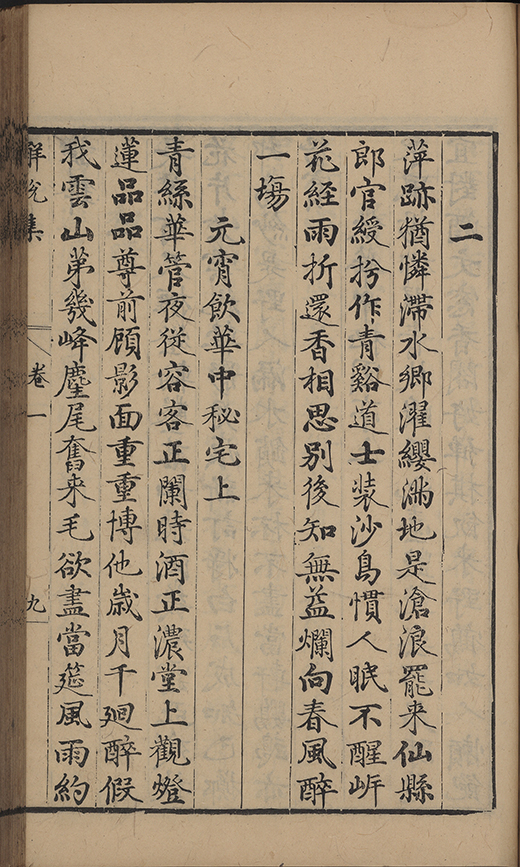 二
萍跡猶憐滯水鄉濯纓滿地是滄浪罷来仙縣
郎官綬扵作青谿道士装沙鳥慣人眠不醒岍
花經雨折還香相思别後知無益爛向春風醉
一塲
元宵飲華中秘宅上
青絲華管夜從容客正闌時酒正濃堂上觀燈
蓮品品尊前顧影面重重博他歲月千廻醉假
我雲山第幾峰麈尾奮来毛欲盡當筵風雨約
卷一
九